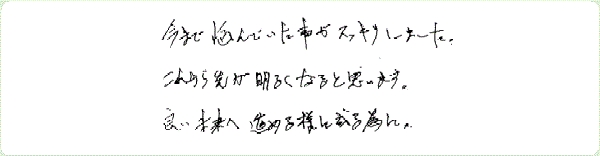 今まで悩んでいた事がスッキリしました。
これから先が明るくなると思います。
良い未来へ進める様に成る為に。